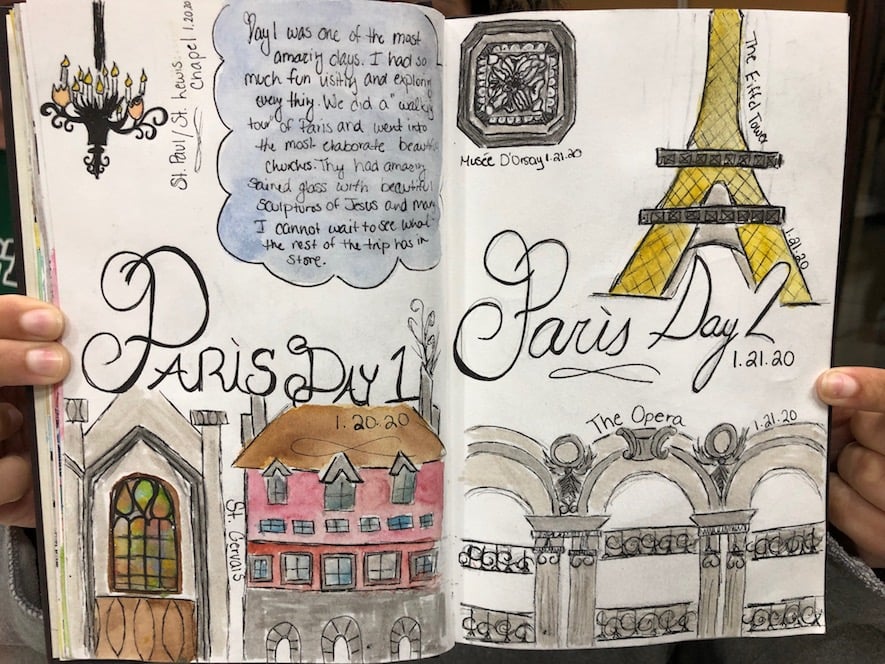 St. Paul/St. Lewis
Chapel 1.20.20
Day 1 was one of the most
amazing days. I had so
much fun visiting and exploring
every thing. We did a "walking
tour of Paris and went into
the most elaborate beautiful
churches. Thy had amazing
stained glass with beautiful
sculptures of Jesus and many
I cannot wait to see what
the rest of the trip has in
store.
PARIS DAY 1
1.20.20
St. Gervais
Musée D'Orsay 1.21.20
The Eiffel Tower
1.21.20
Paris Day 2
1.21.20
The Opera
1.21.20